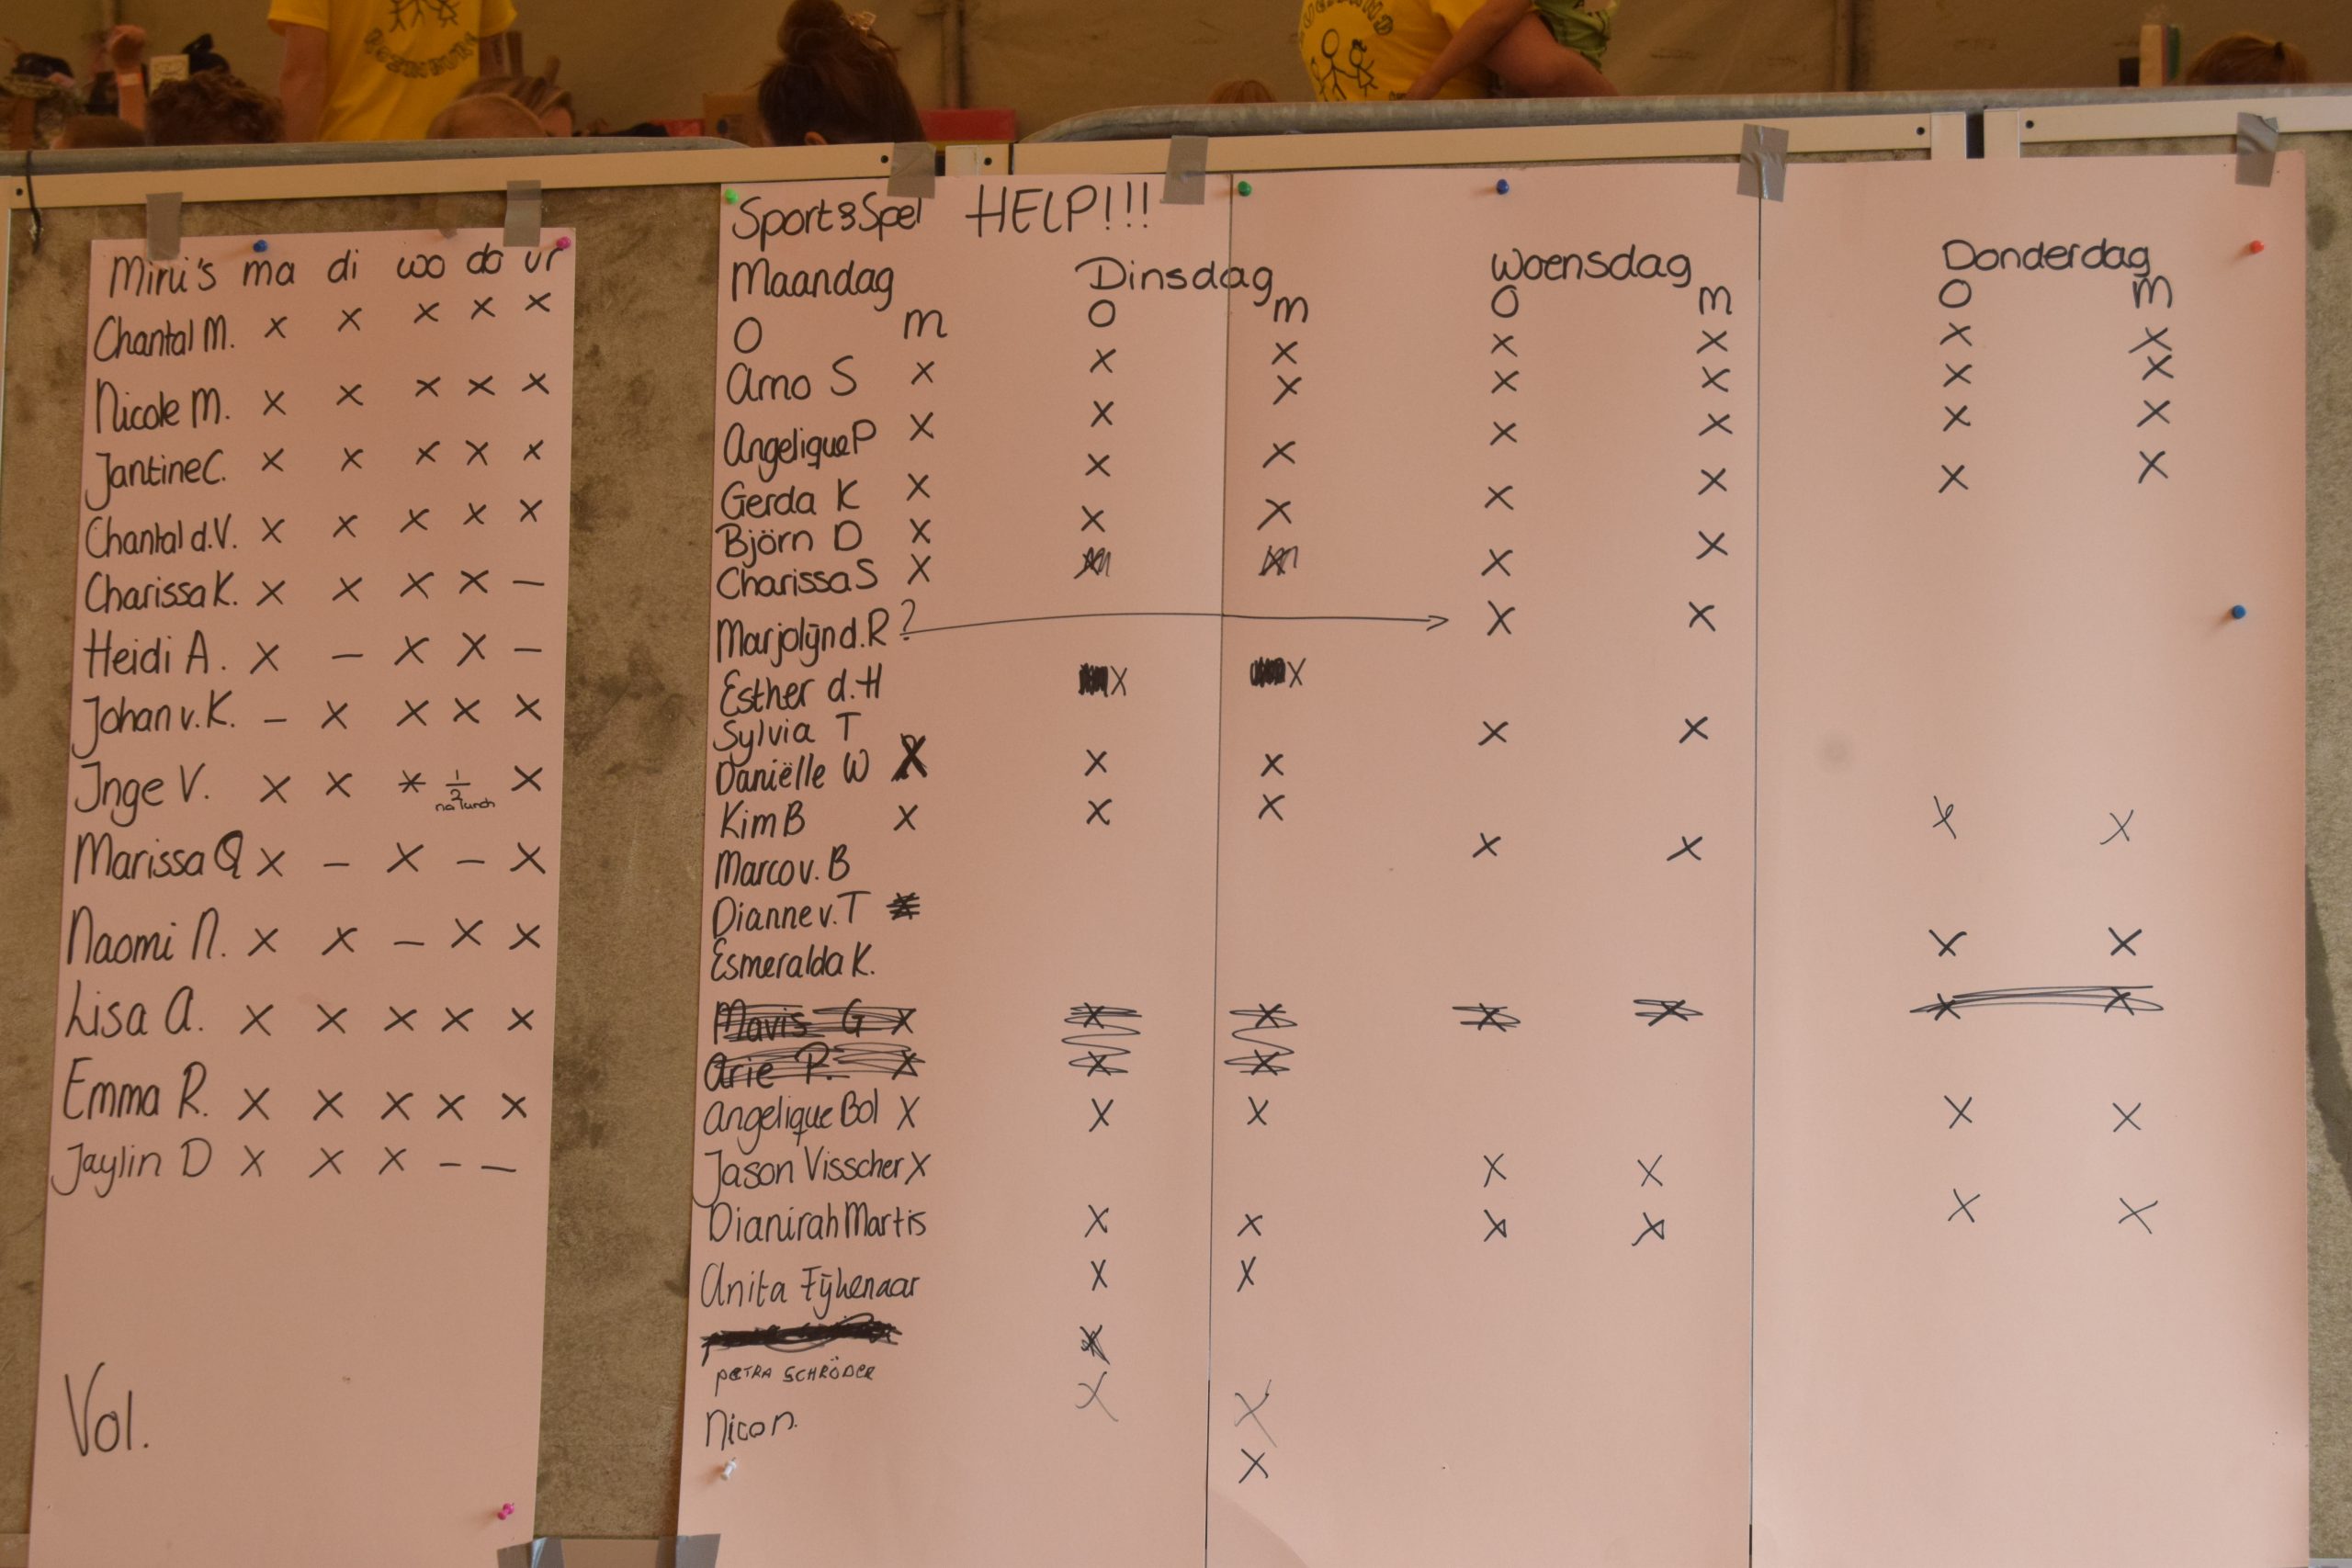 Mini's ma di wo do vr
Chantal M. x x x x x
Nicole M. x x x x x
Jantine C. x x x x x
Chantal d.V. x x x x x
Charissa K. x x x x –
Heidi A. x – x x –
Johan v. K. – x x x x
Inge V. x x x 1/2 na lunch x
Marissa Q x – x – x
Naomi N. x x – x x
Lisa A. x x x x x
Emma R. x x x x x
Jaylin D x x x – –
Vol.
Sport & Spel HELP!!!
Maandag Dinsdag Woensdag Donderdag
O m O m O m O m
Arno S x x x x x x x
Angelique P x x x x x x x
Gerda K x x x x x x x
Björn D x x x x x x x
Charissa S x x x
Marjolijn d. R ? x x
Esther d. H x x
Sylvia T x x
Daniëlle W x x x
Kim B x x x x x
Marco v. B x x
Dianne v. T
Esmeralda K. x x
Mavis G x x x x x x x
Arie P. x x x
Angelique Bol x x x x x
Jason Visscher x x x
Dianirah Martis x x x x x x
Anita Fijkenaar x x
PETRA SCHRÖDER x x
Nico n. x